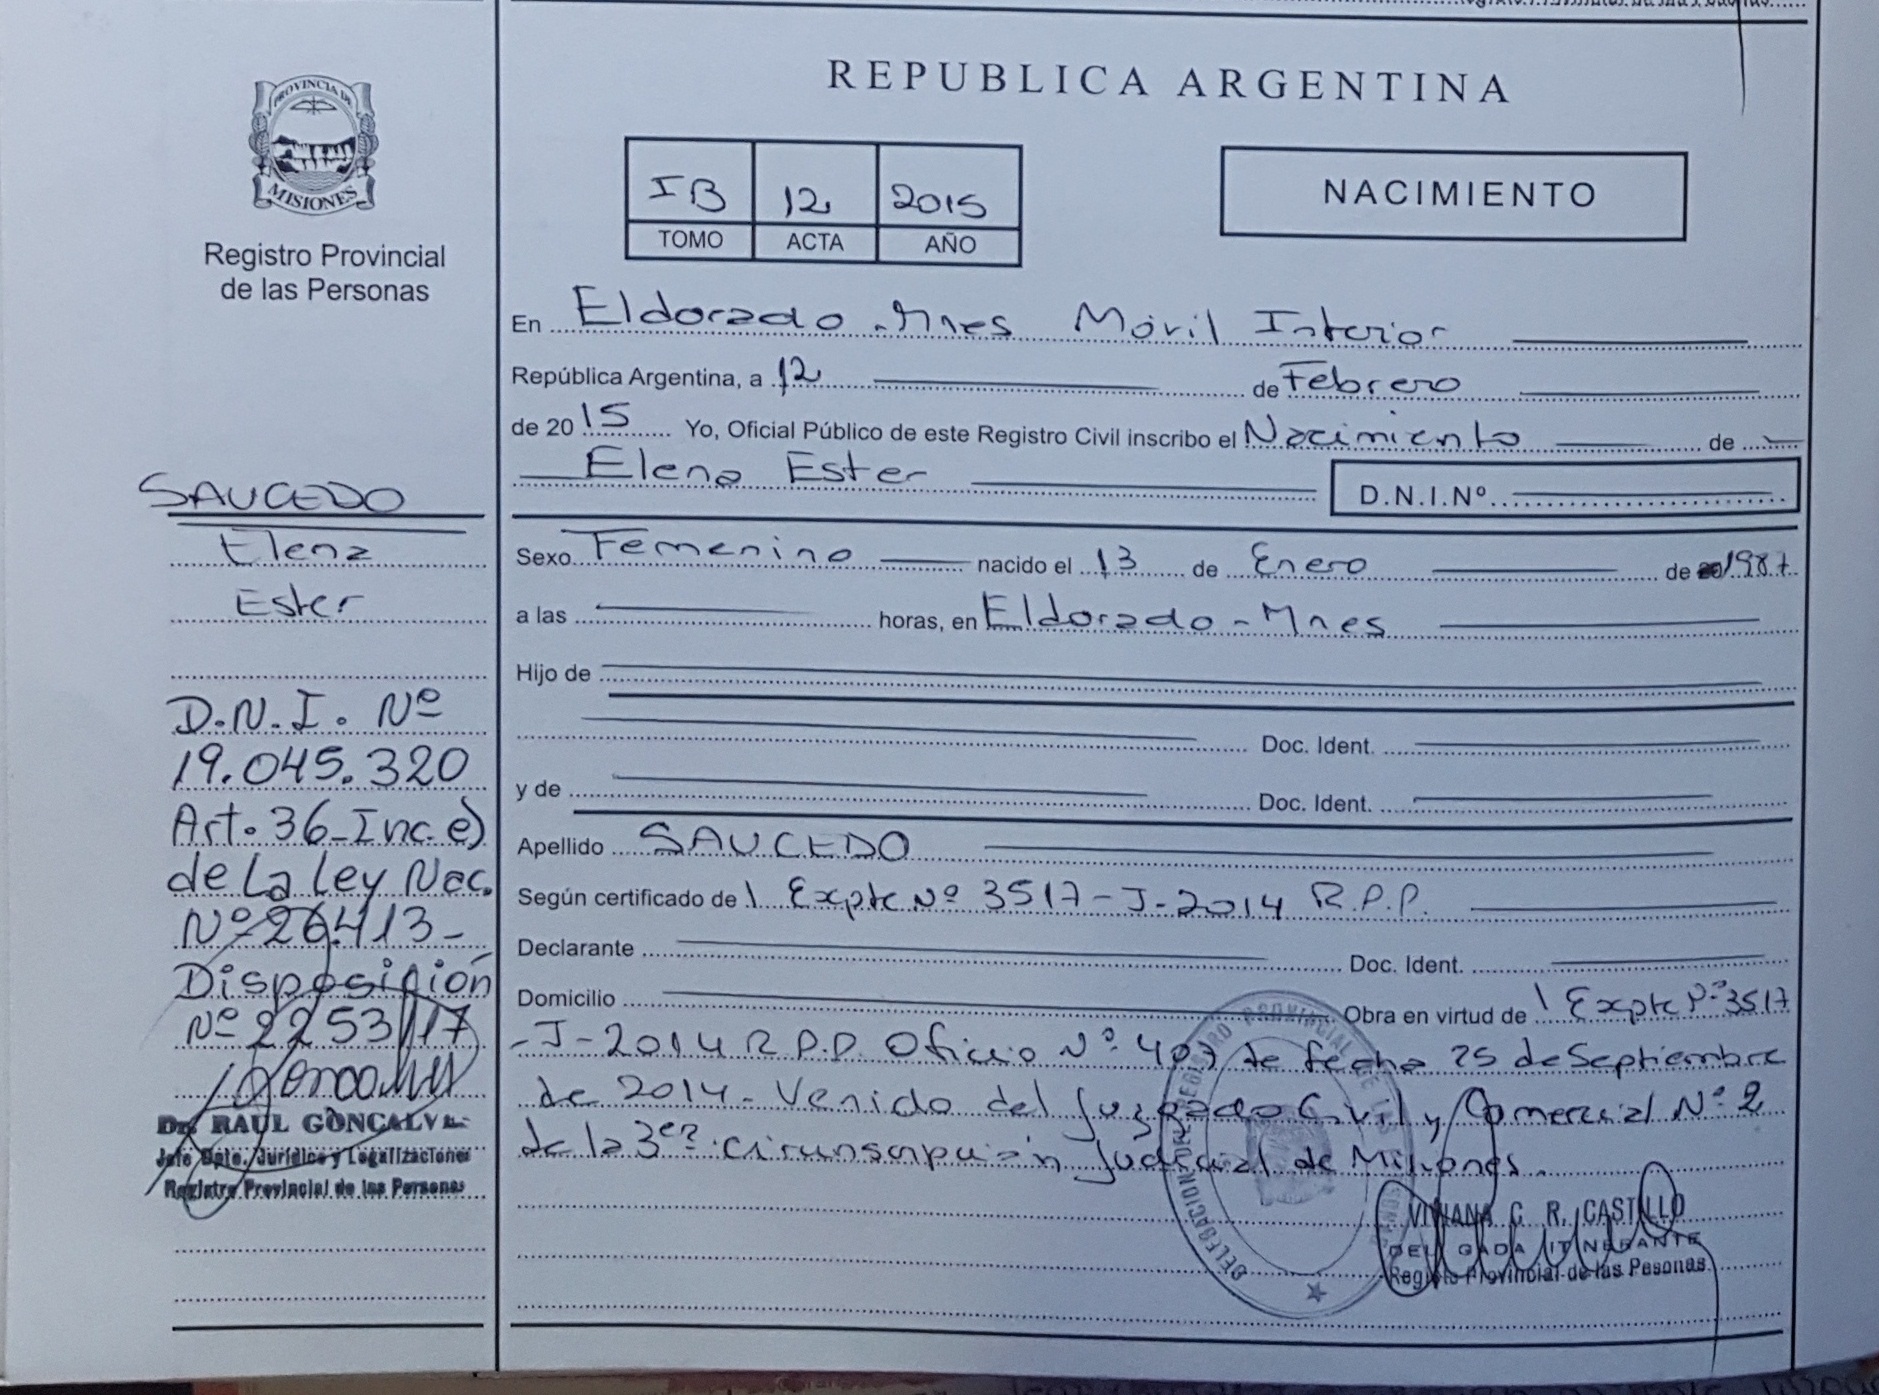 REPUBLICA ARGENTINA
PROVINCIA DE
MISIONES
Registro Provincial
de las Personas
IB 12 2015
TOMO ACTA AÑO
NACIMIENTO
En Eldorado - Mnes Móvil Interior
República Argentina, a 12 de Febrero
de 20 15 Yo, Oficial Público de este Registro Civil inscribo el Nacimiento de
Elena Ester D.N.I.Nº
Sexo Femenino nacido el 13 de Enero de 1987
a las horas, en Eldorado - Mnes
Hijo de
Doc. Ident.
y de Doc. Ident.
Apellido SAUCEDO
Según certificado de Expte Nº 3517-J-2014 R.P.P.
Declarante Doc. Ident.
Domicilio Obra en virtud de Expte Nº 3517
-J-2014 R.P.P. Oficio Nº 407 de fecha 25 de Septiembre
de 2014 - Venido del Juzgado Civil y Comercial Nº 2
de la 3era Circunscripción Judicial de Misiones.
VIVIANA C. R. CASTILLO
DELEGADA ITINERANTE
Registro Provincial de las Pesonas
SAUCEDO
Elena
Ester
D.N.I. Nº
19.045.320
Art. 36-Inc. e)
de La Ley Nac.
Nº 26.413-
Disposición
Nº 2253/17
Dr. RAUL GONCALVES
Jefe Dpto. Jurídico y Legalizaciones
Registro Provincial de las Personas